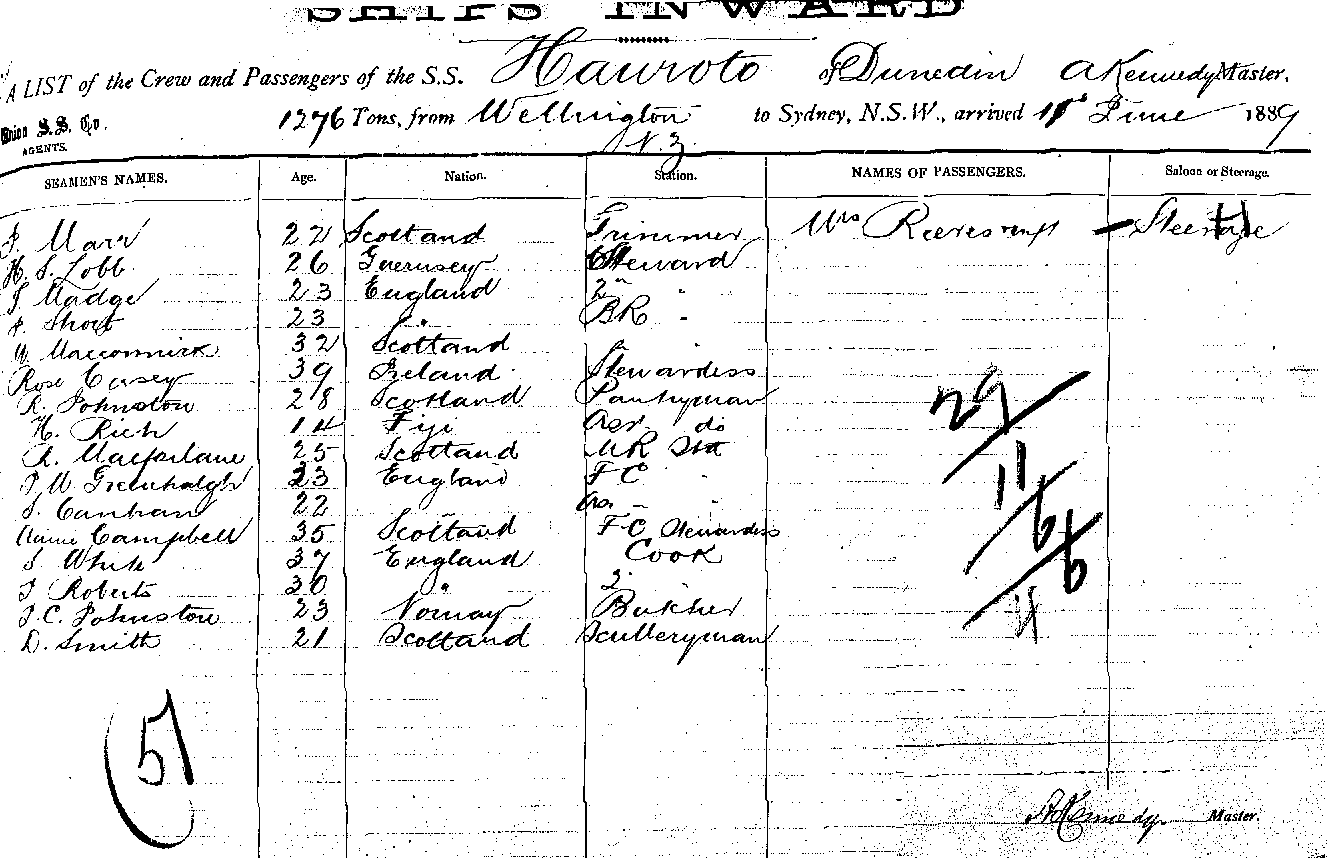 SHIPS INWARD
A LIST of the Crew and Passengers of the S.S. Hauroto of Dunedin A Kennedy Master,
Union S.S. Co. AGENTS. 1276 Tons, from Wellington N.Z. to Sydney, N.S.W., arrived June 1889
SEAMEN'S NAMES. Age. Nation. Station. NAMES OF PASSENGERS. Saloon or Steerage.
Marr 22 Scotland Trimmer Mrs Steerage
H. S. Lobb 26 Guernsey Steward
Madge 23 England 2" "
Short 23 " BR "
Maccormick 32 Scotland " "
Rose Casey 39 Ireland Stewardess
R. Johnston 28 Scotland Pantryman
H. Rich 14 Fiji Asr do
A. Macfarlane 25 Scotland MR Std
W Greenhalgh 23 England FC "
Canham 22 " As. " "
Annie Campbell 35 Scotland F.C. Stewardess
White 37 England Cook
Roberts 30 " 2
J. C. Johnston 23 Norway Butcher
D. Smith 21 Scotland Sculleryman
29
11
6
6
4
5
A Kennedy Master.